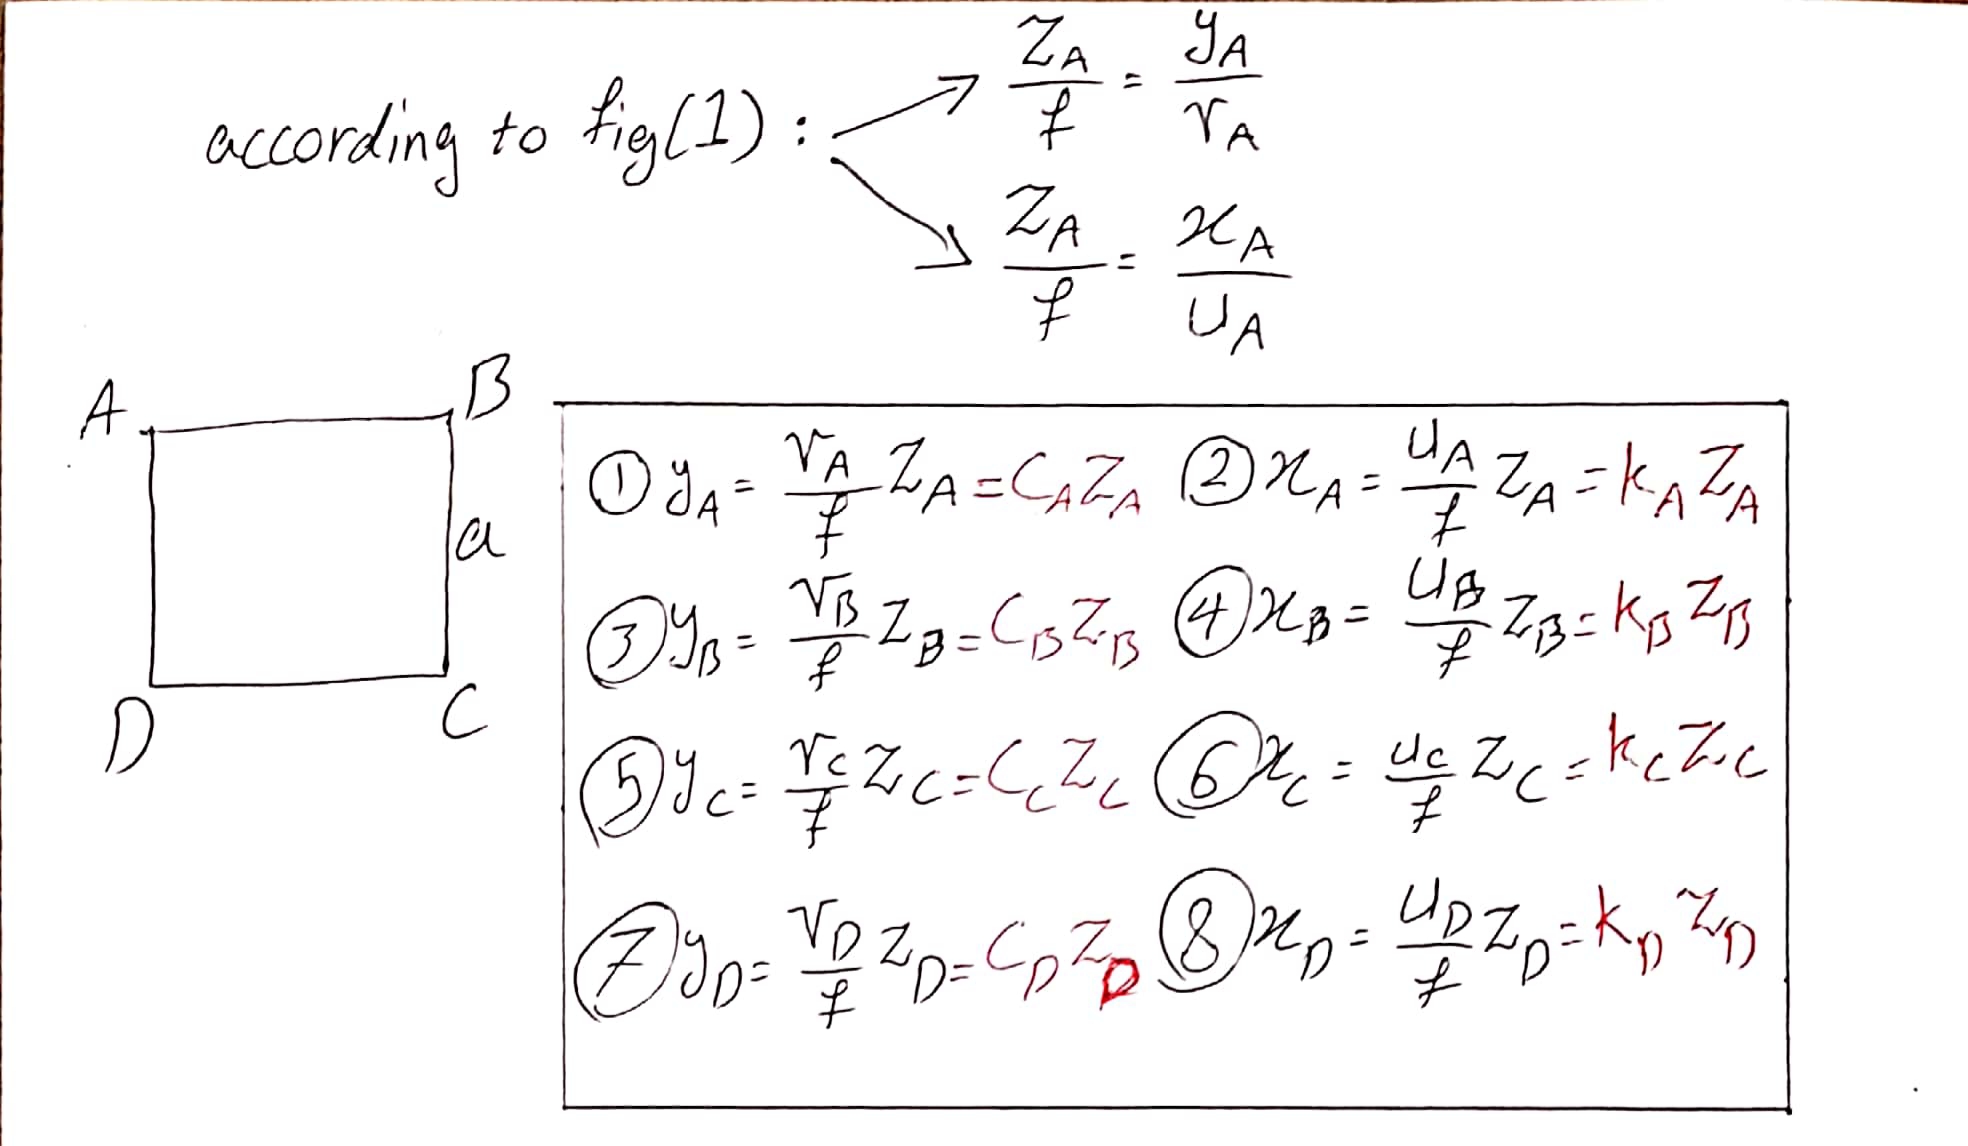 according to fig(1) :
Z_A/f = y_A/v_A
Z_A/f = x_A/u_A
A B
a
D C
① y_A = v_A/f Z_A = C_A Z_A ② x_A = u_A/f Z_A = k_A Z_A
③ y_B = v_B/f Z_B = C_B Z_B ④ x_B = u_B/f Z_B = k_B Z_B
⑤ y_C = v_C/f Z_C = C_C Z_C ⑥ x_C = u_C/f Z_C = k_C Z_C
⑦ y_D = v_D/f Z_D = C_D Z_D ⑧ x_D = u_D/f Z_D = k_D Z_D